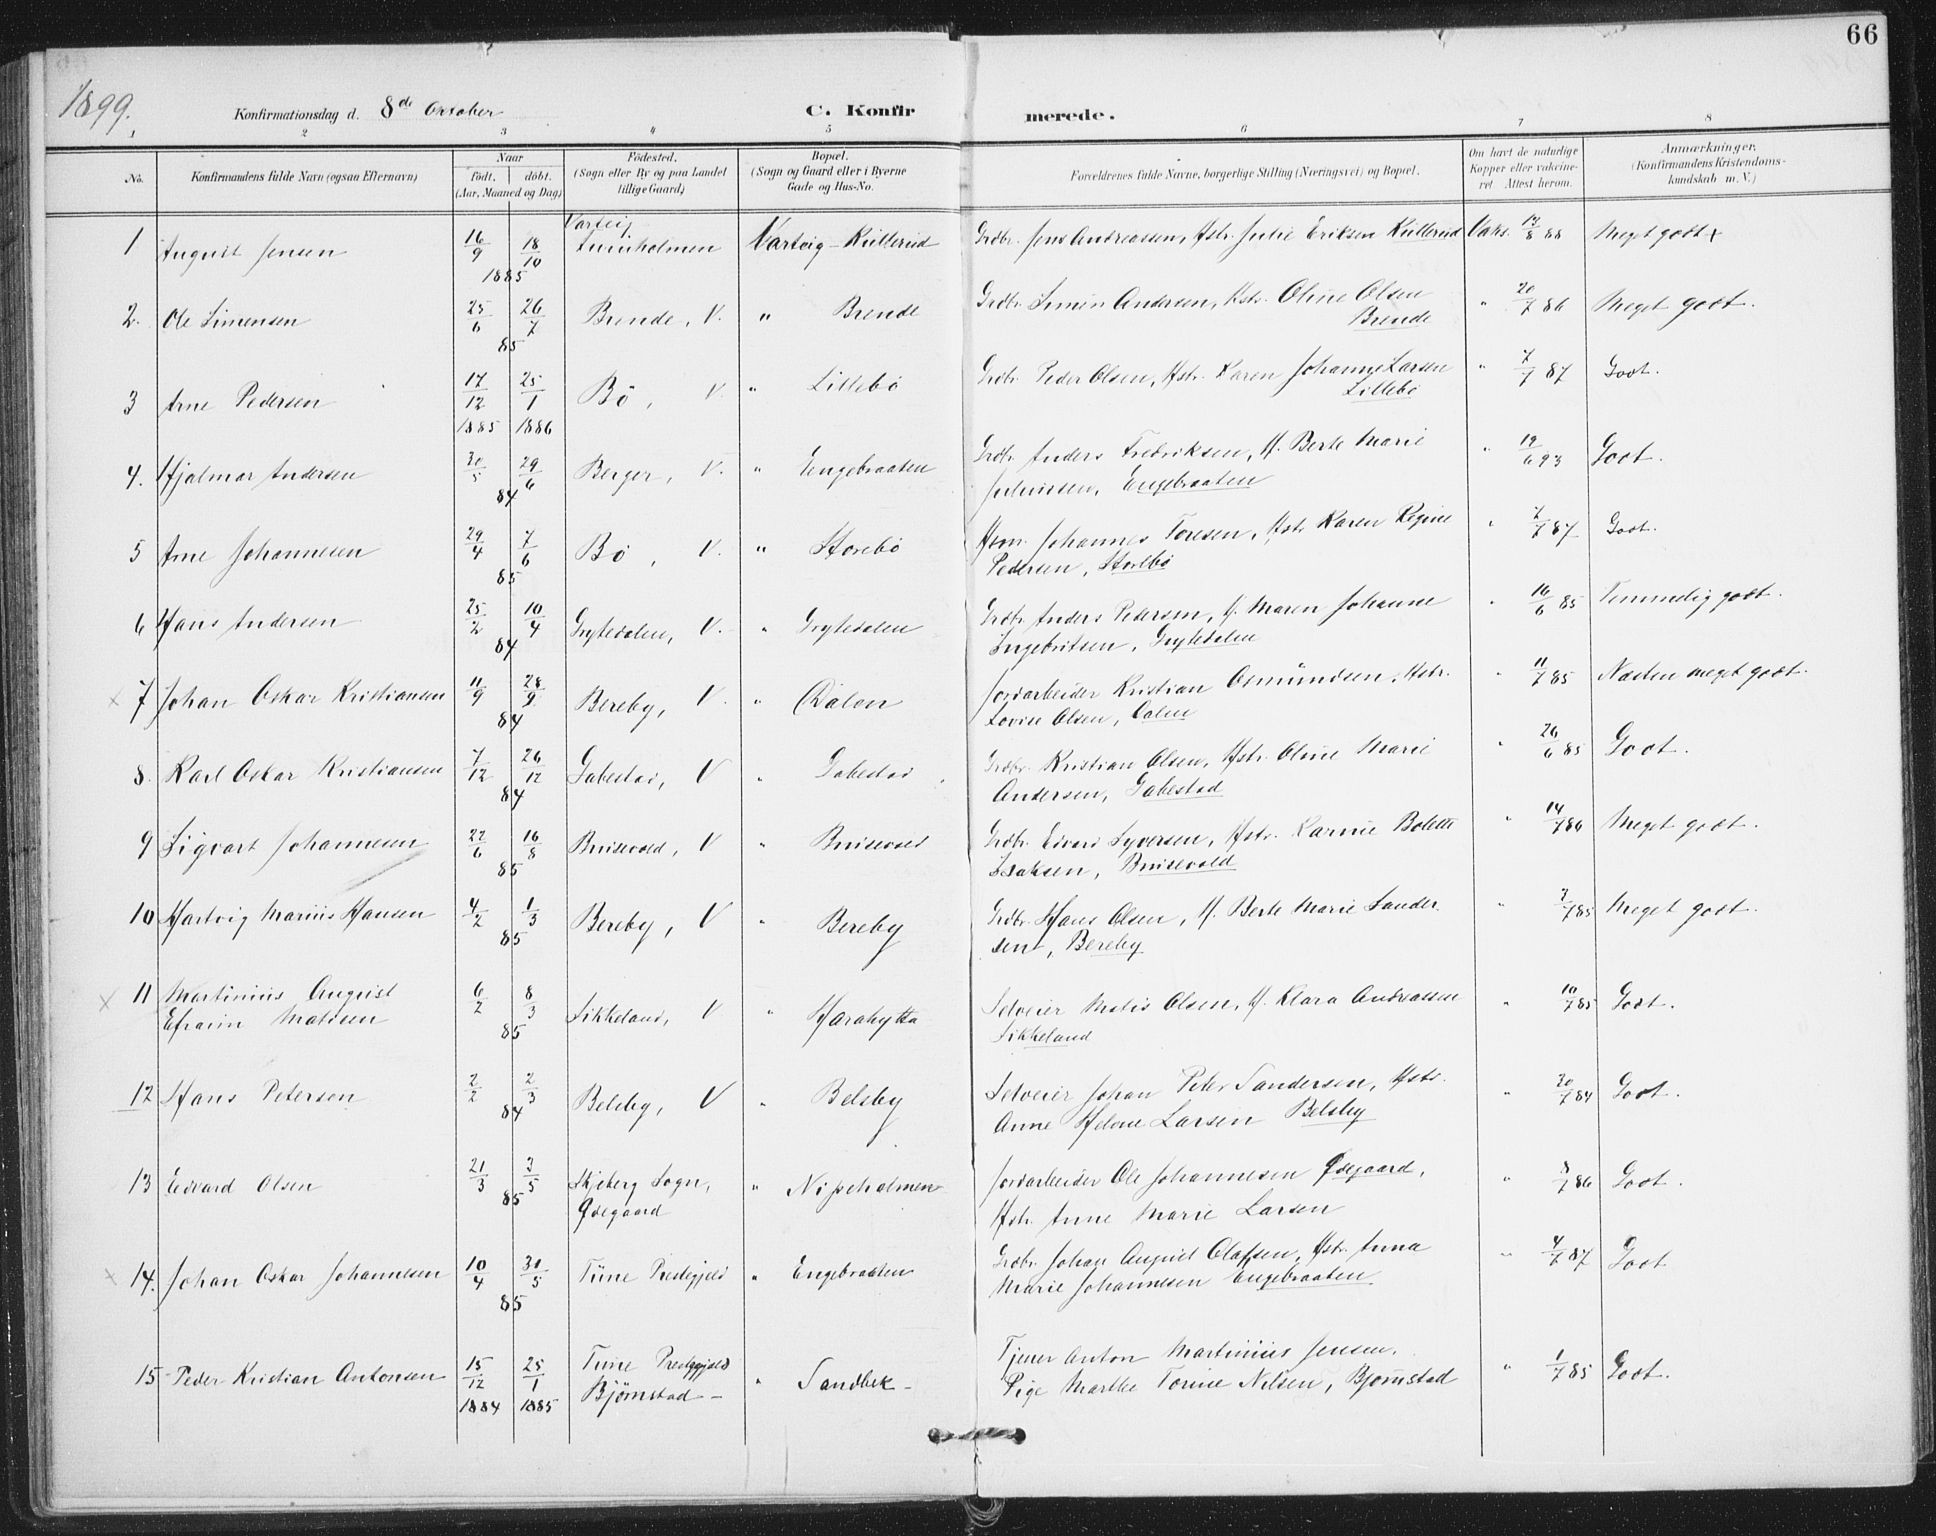 66
1899.
Konfirmationsdag d. 8de October
C. Konfirmerede.
1 2 3 4 5 6 7 8
No.
Konfirmandens fulde Navn (ogsaa Efternavn)
Naar
født. døbt.
(Aar, Maaned og Dag)
Fødested.
(Sogn eller By og paa Landet
tillige Gaard)
Bopæl.
(Sogn og Gaard eller i Byerne
Gade og Hus-No.
Forældrenes fulde Navne, borgerlige Stilling (Næringsvei) og Bopæl.
Om havt de naturlige
Kopper eller vakcine-
ret Attest herom.
Anmærkninger.
(Konfirmandens Kristendoms-
kundskab m. V.)
1 August Jensen 16/9 18/10 1885 Varteig Varteig - Kullerud Grdbr. Jens Andreassen, Hstr. Julie Eriksen Kullerud Vaks. Meget godt
2. Ole Simensen 25/6 26/7 85 Brende, V. " Brende Grdbr. Simen Andersen, Hstr. Oline Olsen " 20/7 86 Meget godt.
Brende
3 Arne Pedersen 17/12 1885 25/1 1886 Bø, V. " Lillebø Grdbr. Peder Olsen, Hstr. Karen Johanne Larsen " 7/7 87 Godt.
Lillebø
4. Hjalmar Andersen 30/5 29/6 84 Berger, V. " Engebraaten Grdbr. Anders Fredriksen, H. Berte Marie " 19/6 93 Godt.
Juliussen, Engebraaten
5 Arne Johannesen 29/4 7/6 85 Bø, V. " Storebø Johannes Toresen, Hstr Karen Regine " 7/7 87 Godt.
Pedersen, Storebø
6 Hans Andersen 25/2 10/4 84 Grytedalen, V. " Grytedalen Grdbr. Anders Pedersen, H. Maren Johanne " 16/6 85 Temmelig godt.
Ingebritsen, Grytedalen
7 Johan Oskar Kristiansen 11/9 28/9 84 Bereby, V. " Dalen Jordarbeider Kristian Osmundsen, Hstr. " 11/7 85 Næsten meget godt.
Lovise Olsen, Dalen
8. Karl Oskar Kristiansen 7/12 26/12 84 Gabestad, V " Gabestad Grdbr. Kristian Olsen, Hstr. Oline Marie " 26/6 85 Godt.
Andersen, Gabestad
9 Sigvart Johannesen 22/6 16/8 85 Brusevold, V " Brusevold Grdbr. Edvard Syversen, Hstr. Karine Bolette " 14/7 86 Meget godt.
Isaksen, Brusevold
10 Hartvig Marius Hansen 4/2 1/3 85 Bereby, V " Bereby Grdbr. Hans Olsen, H. Berte Marie Sander- " 7/7 85 Meget godt.
sen, Bereby
11 Martinius August 6/2 8/3 85 Sikkeland, V " Harahytta Selveier Matis Olsen, H. Klara Andreassen " 10/7 85 Godt.
Efraim Matisen Sikkeland
12 Hans Petersen 2/2 2/3 84 Belsby, V " Belsby Selveier Johan Peter Sandersen, Hstr. " 20/7 84 Godt.
Anne Helene Larsen Belsby
13 Edvard Olsen 21/3 3/5 85 Skjeberg Sogn, " Nipeholmen Jordarbeider Ole Johannesen Ødegaard, " 8/7 86 Godt.
Ødegaard Hstr. Anne Marie Larsen
14. Johan Oskar Johannesen 10/4 31/5 85 Tune Prestegjeld " Engebraaten Grdbr. Johan August Olafsen, Hstr. Anna " 4/7 87 Godt
Marie Johannesen Engebraaten
15 Peder Kristian Antonsen 15/12 1884 25/1 1885 Tune Prestegjeld " Sandbek - Tjener Anton Martinius Jensen, " 1/7 85 Godt.
Bjørnstad - Pige Marthe Torine Nilsen, Bjørnstad